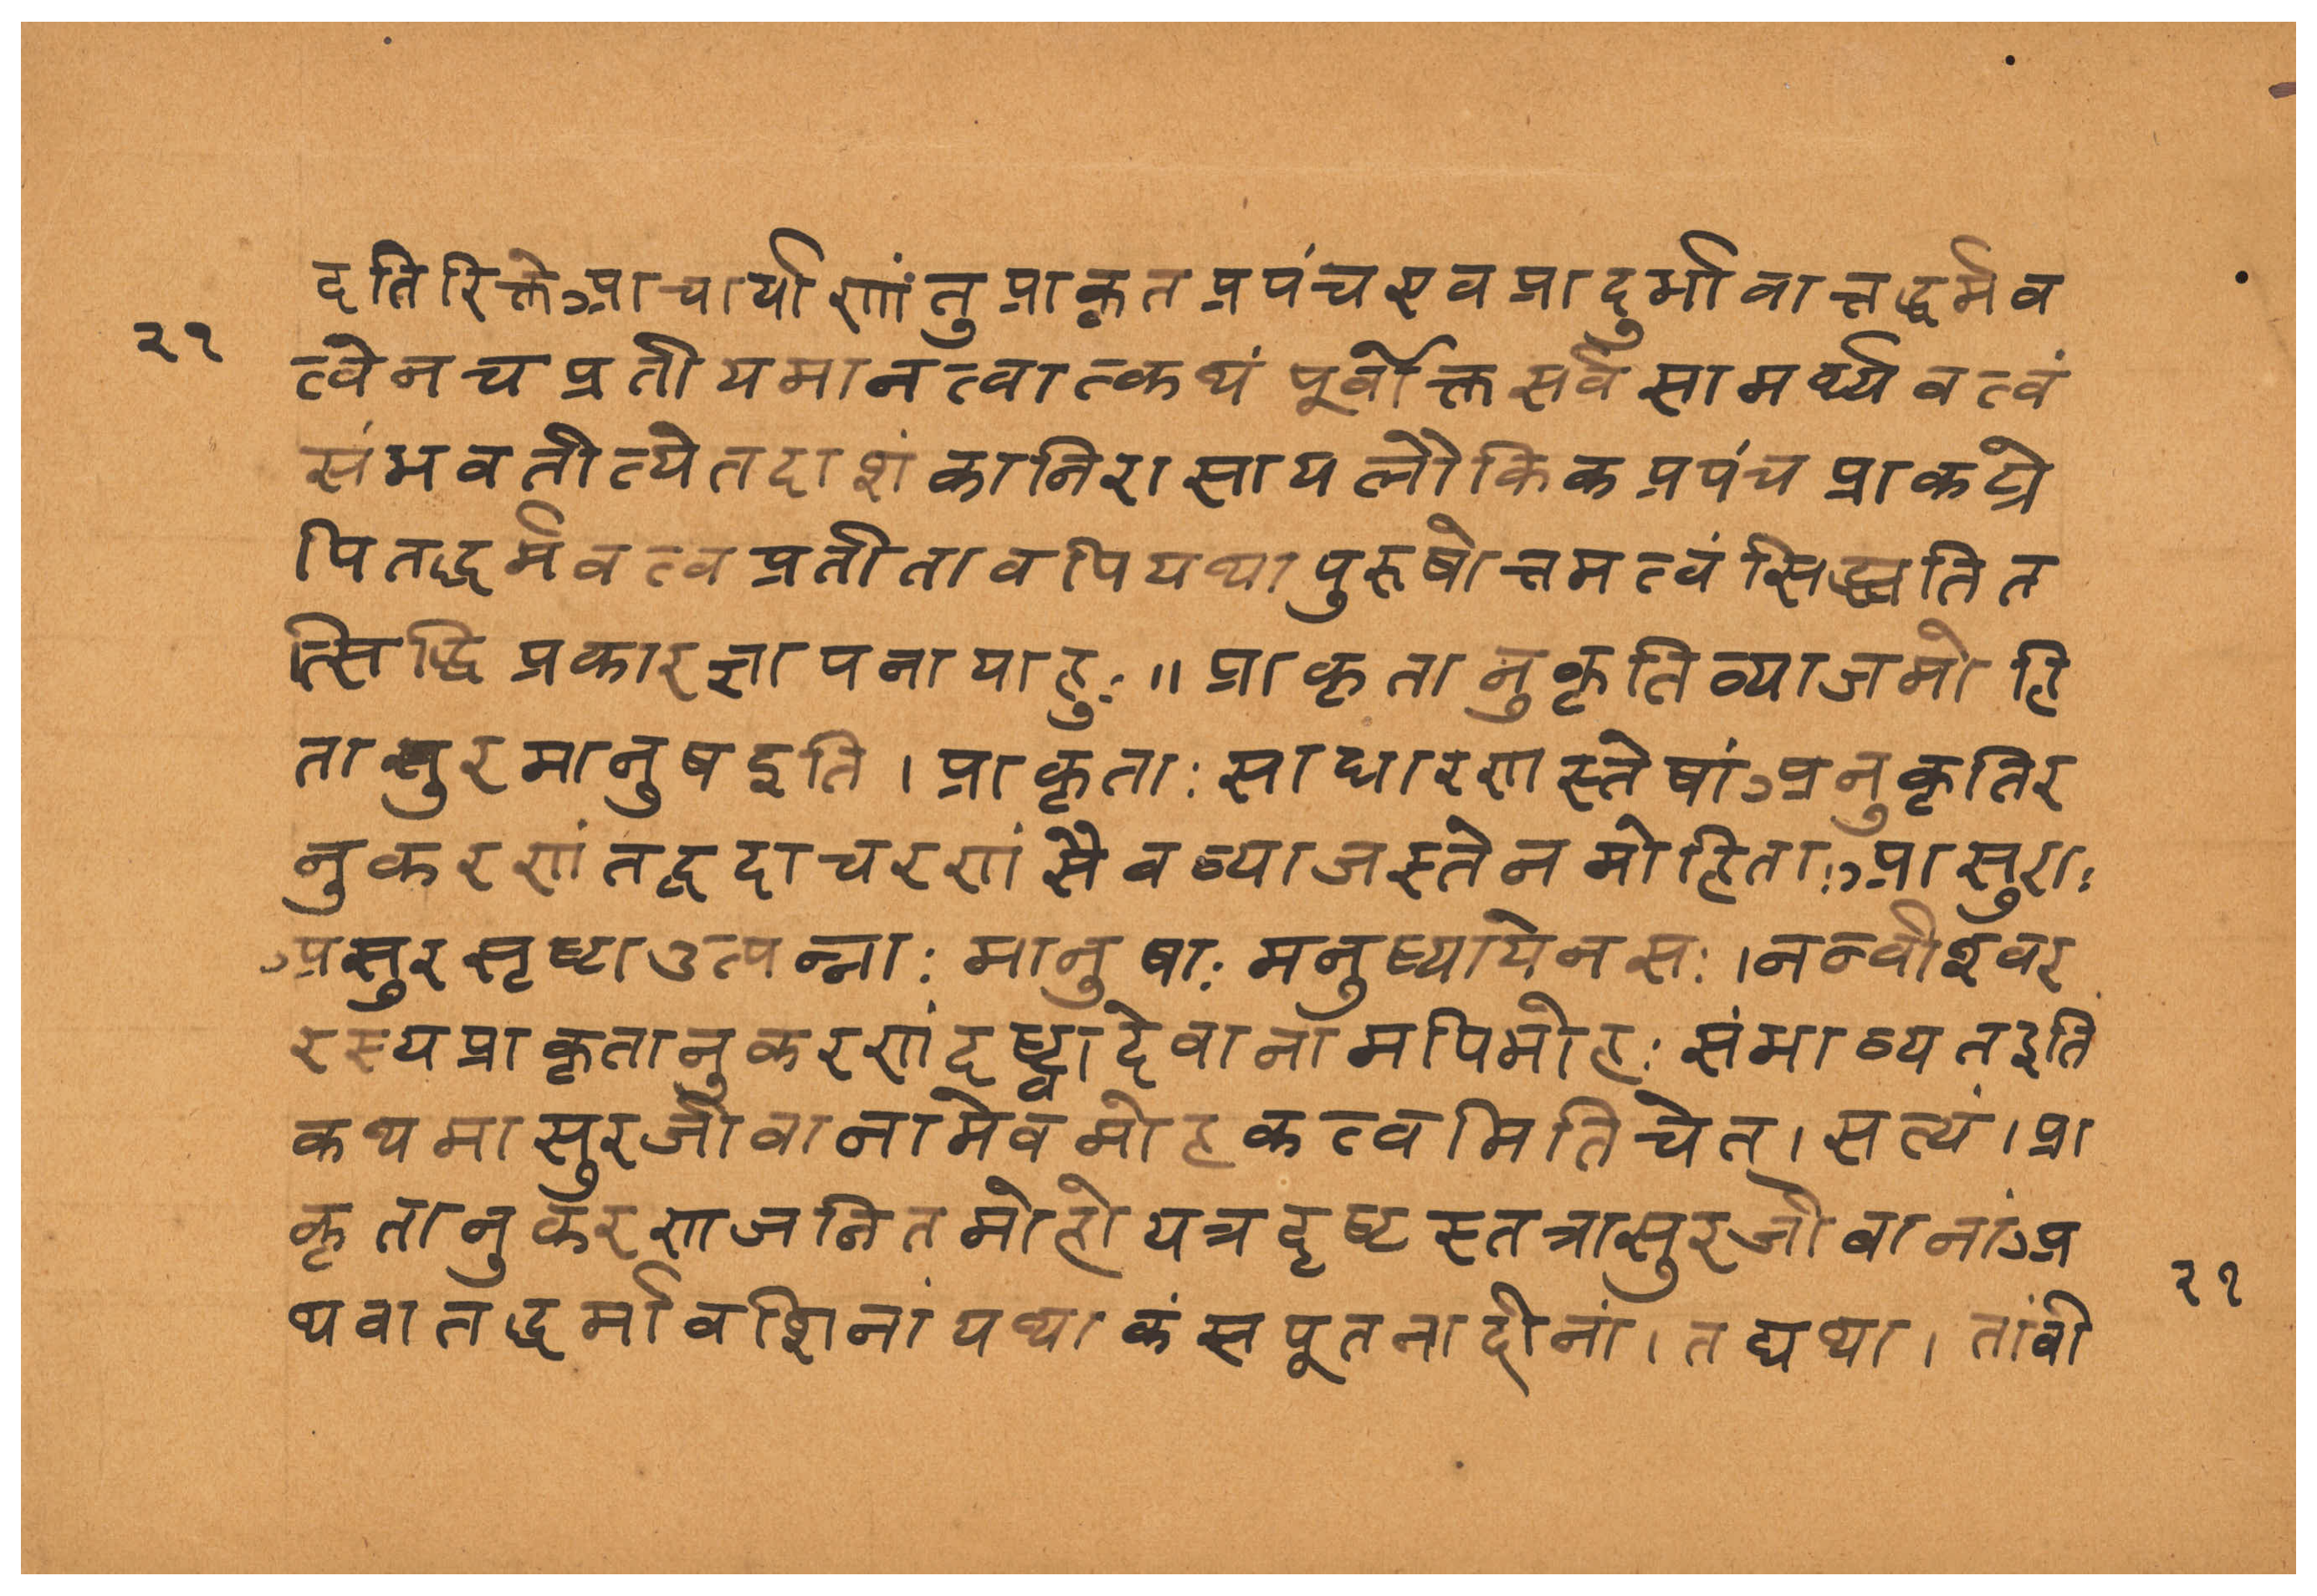 दतिरिक्ते आचार्याणां तु प्राकृतप्रपंच एव प्रादुर्भावात्तद्धर्मव
२१
त्वेन च प्रतीयमानत्वात्कथं पूर्वोक्तसर्वसामर्थ्यवत्वं
संभवतीत्येतदाशंकानिरासाय लौकिकप्रपंचप्राकट्ये
पि तद्धर्मवत्वप्रतीतावपि यथा पुरुषोत्तमत्वं सिद्ध्यति त
त्सिद्धिप्रकारज्ञापनायाहुः ॥ प्राकृतानुकृतिव्याजमोहि
तासुरमानुष इति । प्राकृताः साधारणास्तेषां अनुकृतिर
नुकरणं तद्वदाचरणं सैव व्याजस्तेन मोहिताः आसुराः
असुरसृष्टा उत्पन्नाः मानुषाः मनुष्या येन सः । नन्वीश्वर
रस्य प्राकृतानुकरणं दृष्ट्वा देवानामपि मोहः संभाव्यत इति
कथमासुरजीवानामेव मोहकत्वमिति चेत् । सत्यं । प्रा
कृतानुकरणजनितमोहो यत्र दृष्टस्तत्रासुरजीवानां अ
२१
थवा तद्धर्मावशिनां यथा कंसपूतनादीनां । तद्यथा । तां वी